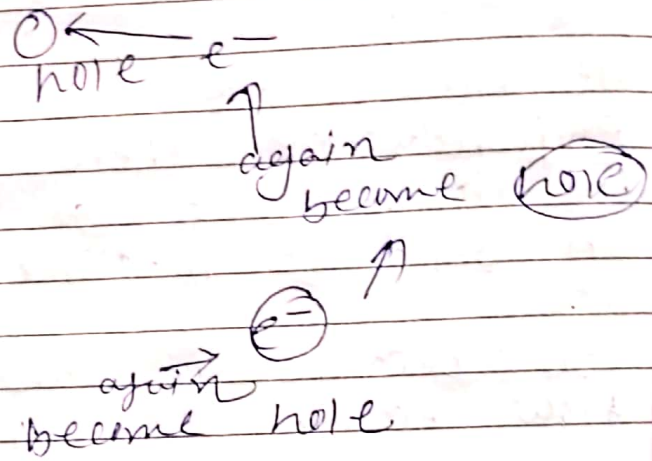 hole e−
again
become hole
e−
again
become hole